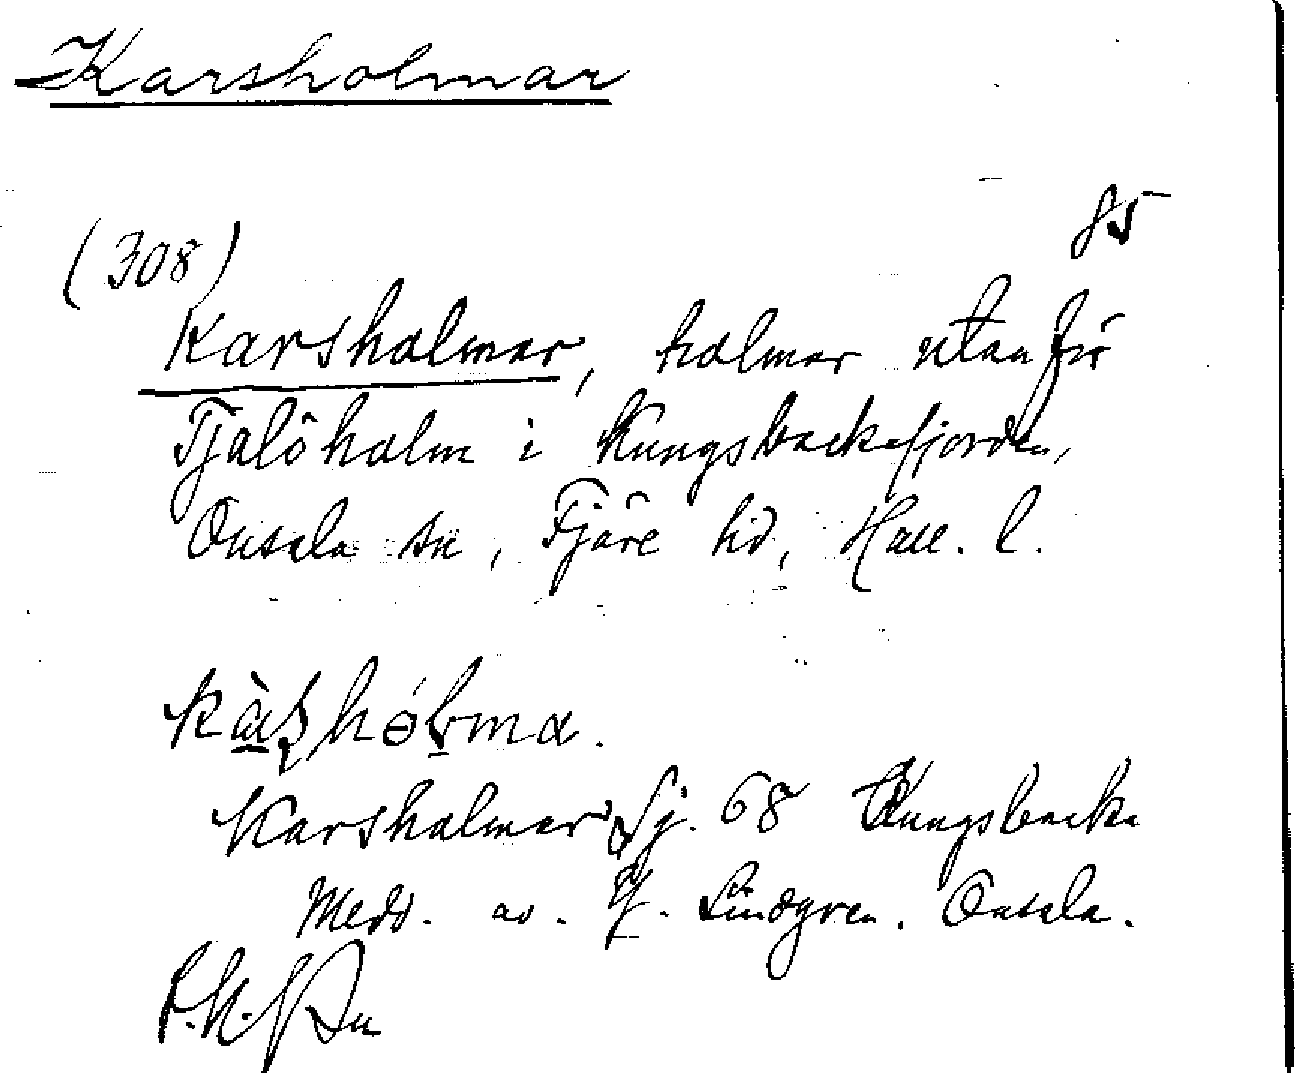 Karsholmar
85
(308)
Karsholmar, holmar utanför
Tjolöholm i Kungsbackafjorden,
Onsala sn, Fjäre hd, Hall. l.
Karsholmar Sj. 68 Kungsbacka
Medd. av. Lindgren. Onsala.